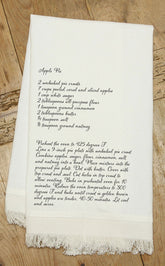 Apple Pie
2 unbaked pie crusts
7 cups peeled and sliced apples
1 cup white sugar
2 tablespoons all purpose flour
1 teaspoon ground cinnamon
2 tablespoons butter
¼ teaspoon salt
¼ teaspoon ground nutmeg
Preheat the oven to 425 degrees F.
Line a 9 inch pie plate with unbaked pie crust.
Combine apples, sugar, flour, cinnamon, salt
and nutmeg into a bowl. Place mixture into the
prepared pie plate. Dot with butter. Cover with
top crust and seal. Cut holes in top crust to
allow venting. Bake in preheated oven for 10
minutes. Reduce the oven temperature to 350
degrees F and bake until crust is golden brown
and apples are tender, 40-50 minutes. Let cool
and serve.